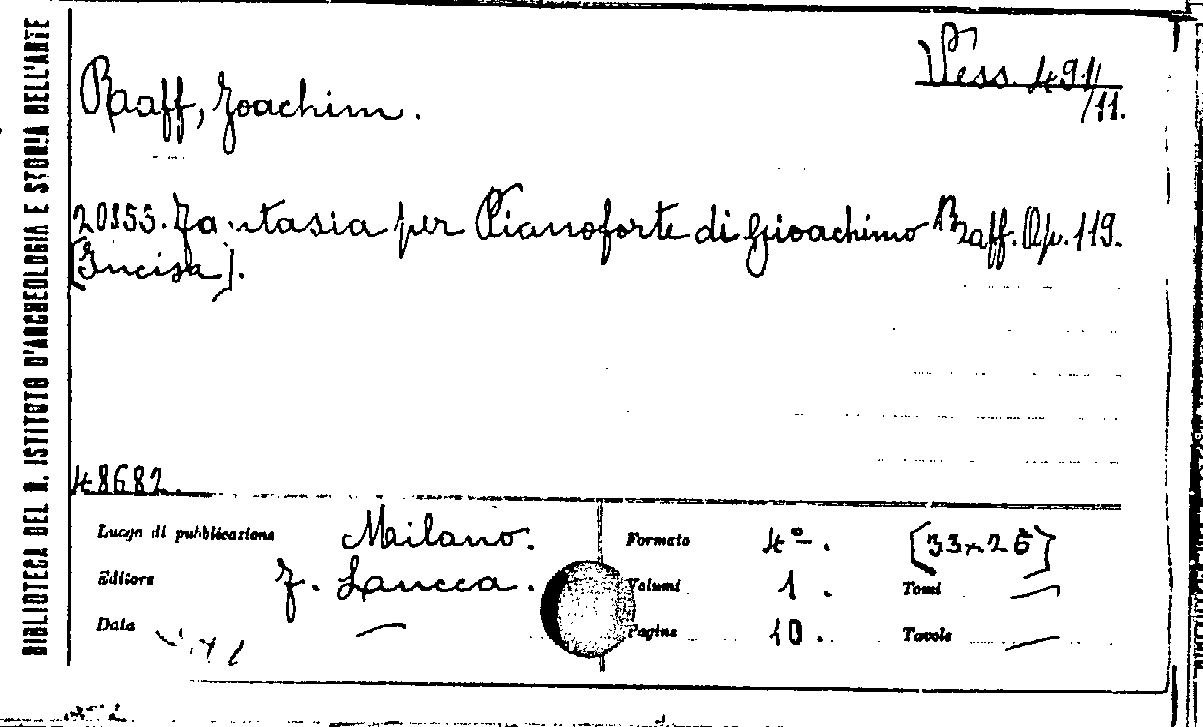 BIBLIOTECA DEL R. ISTITUTO D'ARCHEOLOGIA E STORIA DELL'ARTE
Vess. 491/11.
Raaff, Joachim.
20155. Fantasia per Pianoforte di Gioachimo Raff. Op. 119.
[Incisa].
48682.
Luogo di pubblicazione Milano. Formato 4º. [33x26]
Editore F. Lucca. Volumi 1. Tomi —
Data — Pagine 10. Tavole —